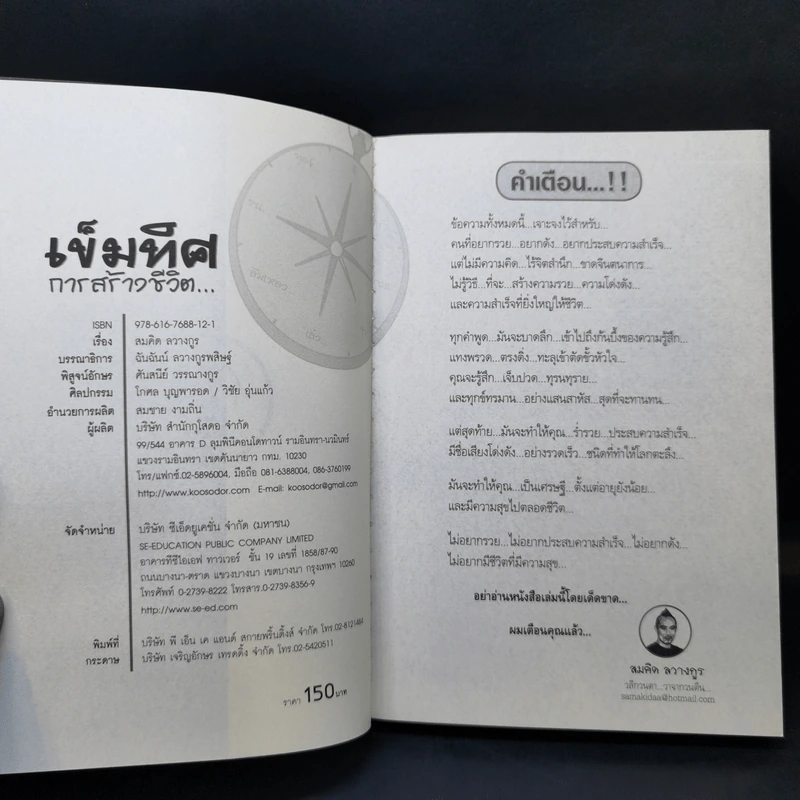 เข็มทิศ
การสร้างชีวิต...
ISBN 978-616-7688-12-1
เรื่อง สมคิด ลวางกูร
บรรณาธิการ ฉันฉันน์ ลวางกูรพสิษฐ์
พิสูจน์อักษร ศันสนีย์ วรรณางกูร
ศิลปกรรม โกศล บุญพารอด / วิชัย อุ่นแก้ว
อำนวยการผลิต สมชาย งามถิ่น
ผู้ผลิต บริษัท สำนักกู้โสดอ จำกัด
99/544 อาคาร D ลุมพินีคอนโดทาวน์ รามอินทรา-นวมินทร์
แขวงรามอินทรา เขตคันนายาว กทม. 10230
โทร/แฟกซ์.02-5896004, มือถือ 081-6388004, 086-3760199
http://www.koosodor.com E-mail: koosodor@gmail.com
จัดจำหน่าย บริษัท ซีเอ็ดยูเคชั่น จำกัด (มหาชน)
SE-EDUCATION PUBLIC COMPANY LIMITED
อาคารทีซีไอเอฟ ทาวเวอร์ ชั้น 19 เลขที่ 1858/87-90
ถนนบางนา-ตราด แขวงบางนา เขตบางนา กรุงเทพฯ 10260
โทรศัพท์ 0-2739-8222 โทรสาร.0-2739-8356-9
http://www.se-ed.com
พิมพ์ที่ บริษัท พี เอ็น เค แอนด์ สกายพริ้นติ้งส์ จำกัด โทร.02-8121484
กระดาษ บริษัท เจริญอักษร เทรดดิ้ง จำกัด โทร.02-5420511
ราคา 150 บาท
คำเตือน...!!
ข้อความทั้งหมดนี้...เจาะจงไว้สำหรับ...
คนที่อยากรวย...อยากดัง...อยากประสบความสำเร็จ...
แต่ไม่มีความคิด...ไร้จิตสำนึก...ขาดจินตนาการ...
ไม่รู้วิธี...ที่จะ...สร้างความรวย...ความโด่งดัง...
และความสำเร็จที่ยิ่งใหญ่ให้ชีวิต...
ทุกคำพูด...มันจะบาดลึก...เข้าไปถึงก้นบึ้งของความรู้สึก...
แทงพรวด...ตรงดิ่ง...ทะลุเข้าตัดขั้วหัวใจ...
คุณจะรู้สึก...เจ็บปวด...ทุรนทุราย...
และทุกข์ทรมาน...อย่างแสนสาหัส...สุดที่จะทานทน...
แต่สุดท้าย...มันจะทำให้คุณ...ร่ำรวย...ประสบความสำเร็จ...
มีชื่อเสียงโด่งดัง...อย่างรวดเร็ว...ชนิดที่ทำให้โลกตะลึง...
มันจะทำให้คุณ...เป็นเศรษฐี...ตั้งแต่อายุยังน้อย...
และมีความสุขไปตลอดชีวิต...
ไม่อยากรวย...ไม่อยากประสบความสำเร็จ...ไม่อยากดัง...
ไม่อยากมีชีวิตที่มีความสุข...
อย่าอ่านหนังสือเล่มนี้โดยเด็ดขาด...
ผมเตือนคุณแล้ว...
สมคิด ลวางกูร
วลีกวนตา...วาจากวนตีน...
samakidaa@hotmail.com